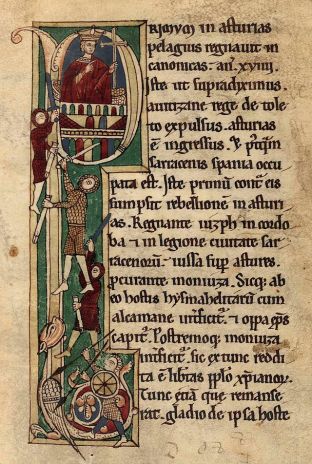 PRIMUM in asturias
pelagius regnauit in
canonicas. an̄. xviii.
Iste ut supradiximus
a uitizane rege de tole
to expulsus. asturias
ē ingressus. & p̄tqm̄
sarracenis spania occu
pata est. Iste primū contᵃ eis
sumpsit rebellionē in asturi
as. Regnante iuzeph in cordo
ba & in legione ciuitate sar
racenorū. iussa sup astures
p̄curante moniuza. Sicq; ab
eo hostis hysmahelitarū cum
alcamane int̄ficit̄. & oppa ep̄s
capit̄. Postremoq; moniuza
int̄ficit̄. sic ex tunc reddi
ta ē libtas pplo xp̄ianor̄.
Tunc etiā que remanse
rat. gladio de ipsa hoste